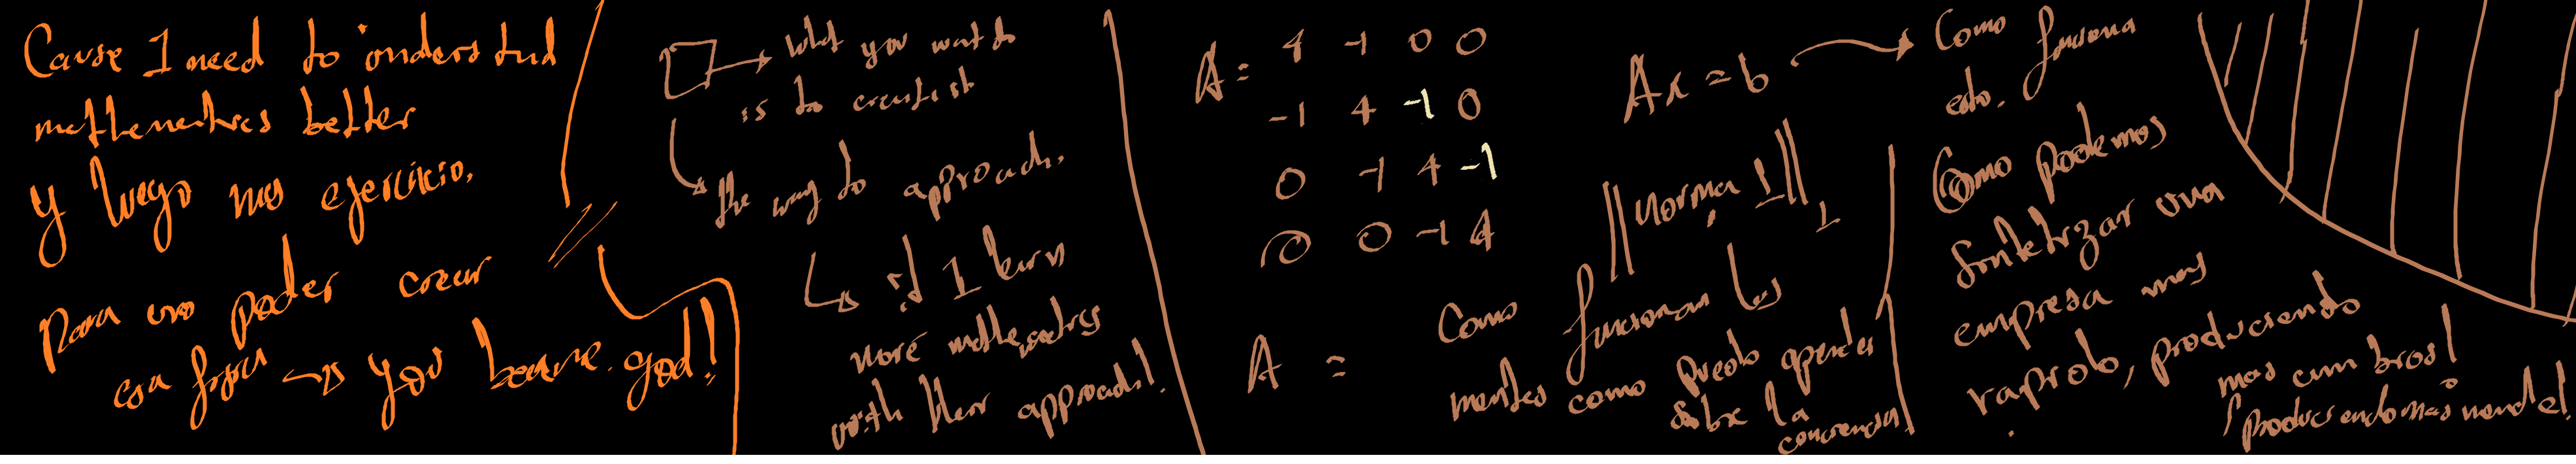 Cause I need to understand
mathematics better
y luego mas ejercicio.
Para uno poder crear
esa → you became god!
→ what you want to
is to
→ the way to approach.
→ if I learn
more mathematics
with their approach!
A = 4 -1 0 0
-1 4 -1 0
0 -1 4 -1
0 0 -1 4
A =
Ax = b → Como funciona
esto.
||Norma 1||₁
Como funcionan las
mentes como puedo aprender
sobre la
Como podemos
sintetizar una
empresa mas
rapido, produciendo
mas
produciendo mas